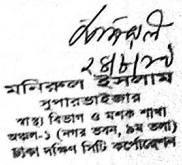 ২৪/৮/২০
মনিরুল ইসলাম
সুপারভাইজার
স্বাস্থ্য বিভাগ ও মশক শাখা
অঞ্চল-১ (নগর ভবন, ৯ম তলা)
ঢাকা দক্ষিণ সিটি কর্পোরেশন